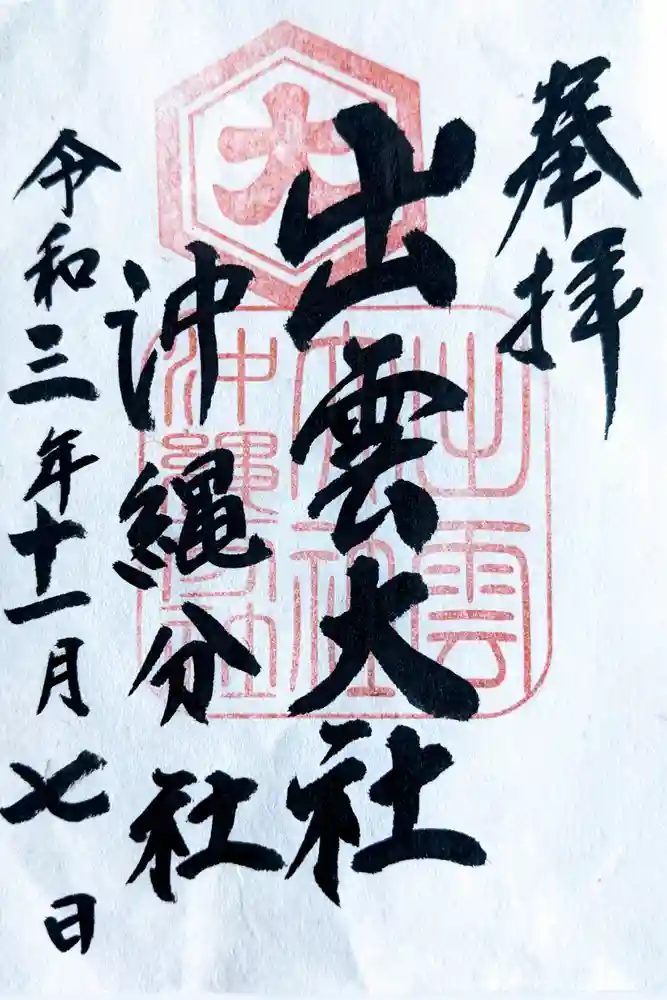 奉拝
出雲大社
沖縄分社
令和三年十一月七日
大
出雲大社沖縄分社